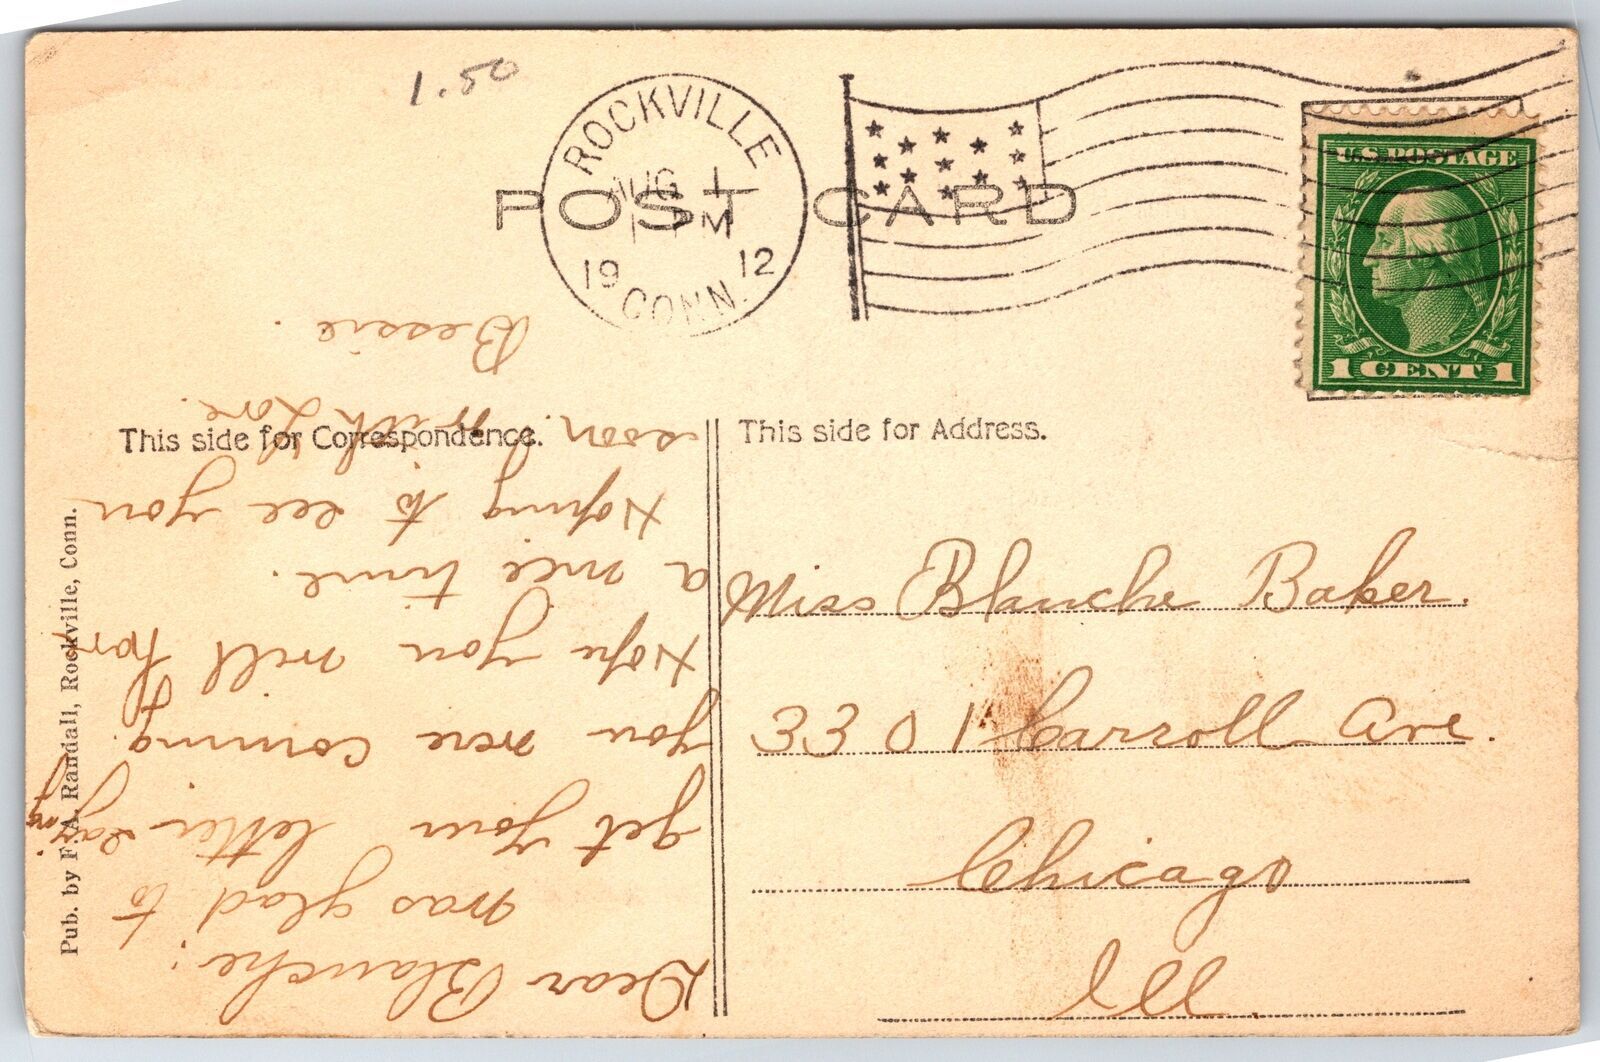 1.50
ROCKVILLE
AUG 1
1 PM
19 12
CONN.
POST CARD
U.S. POSTAGE
1 CENT 1
This side for Correspondence.
This side for Address.
Pub. by F. A. Randall, Rockville, Conn.
Dear Blanche:
was glad to
get your letter saying
you were coming.
Hope you will hav
a nice time.
Hoping to see you
soon. with Love.
Bessie.
Miss Blanche Baker.
3301 Carroll Ave.
Chicago
Ill.